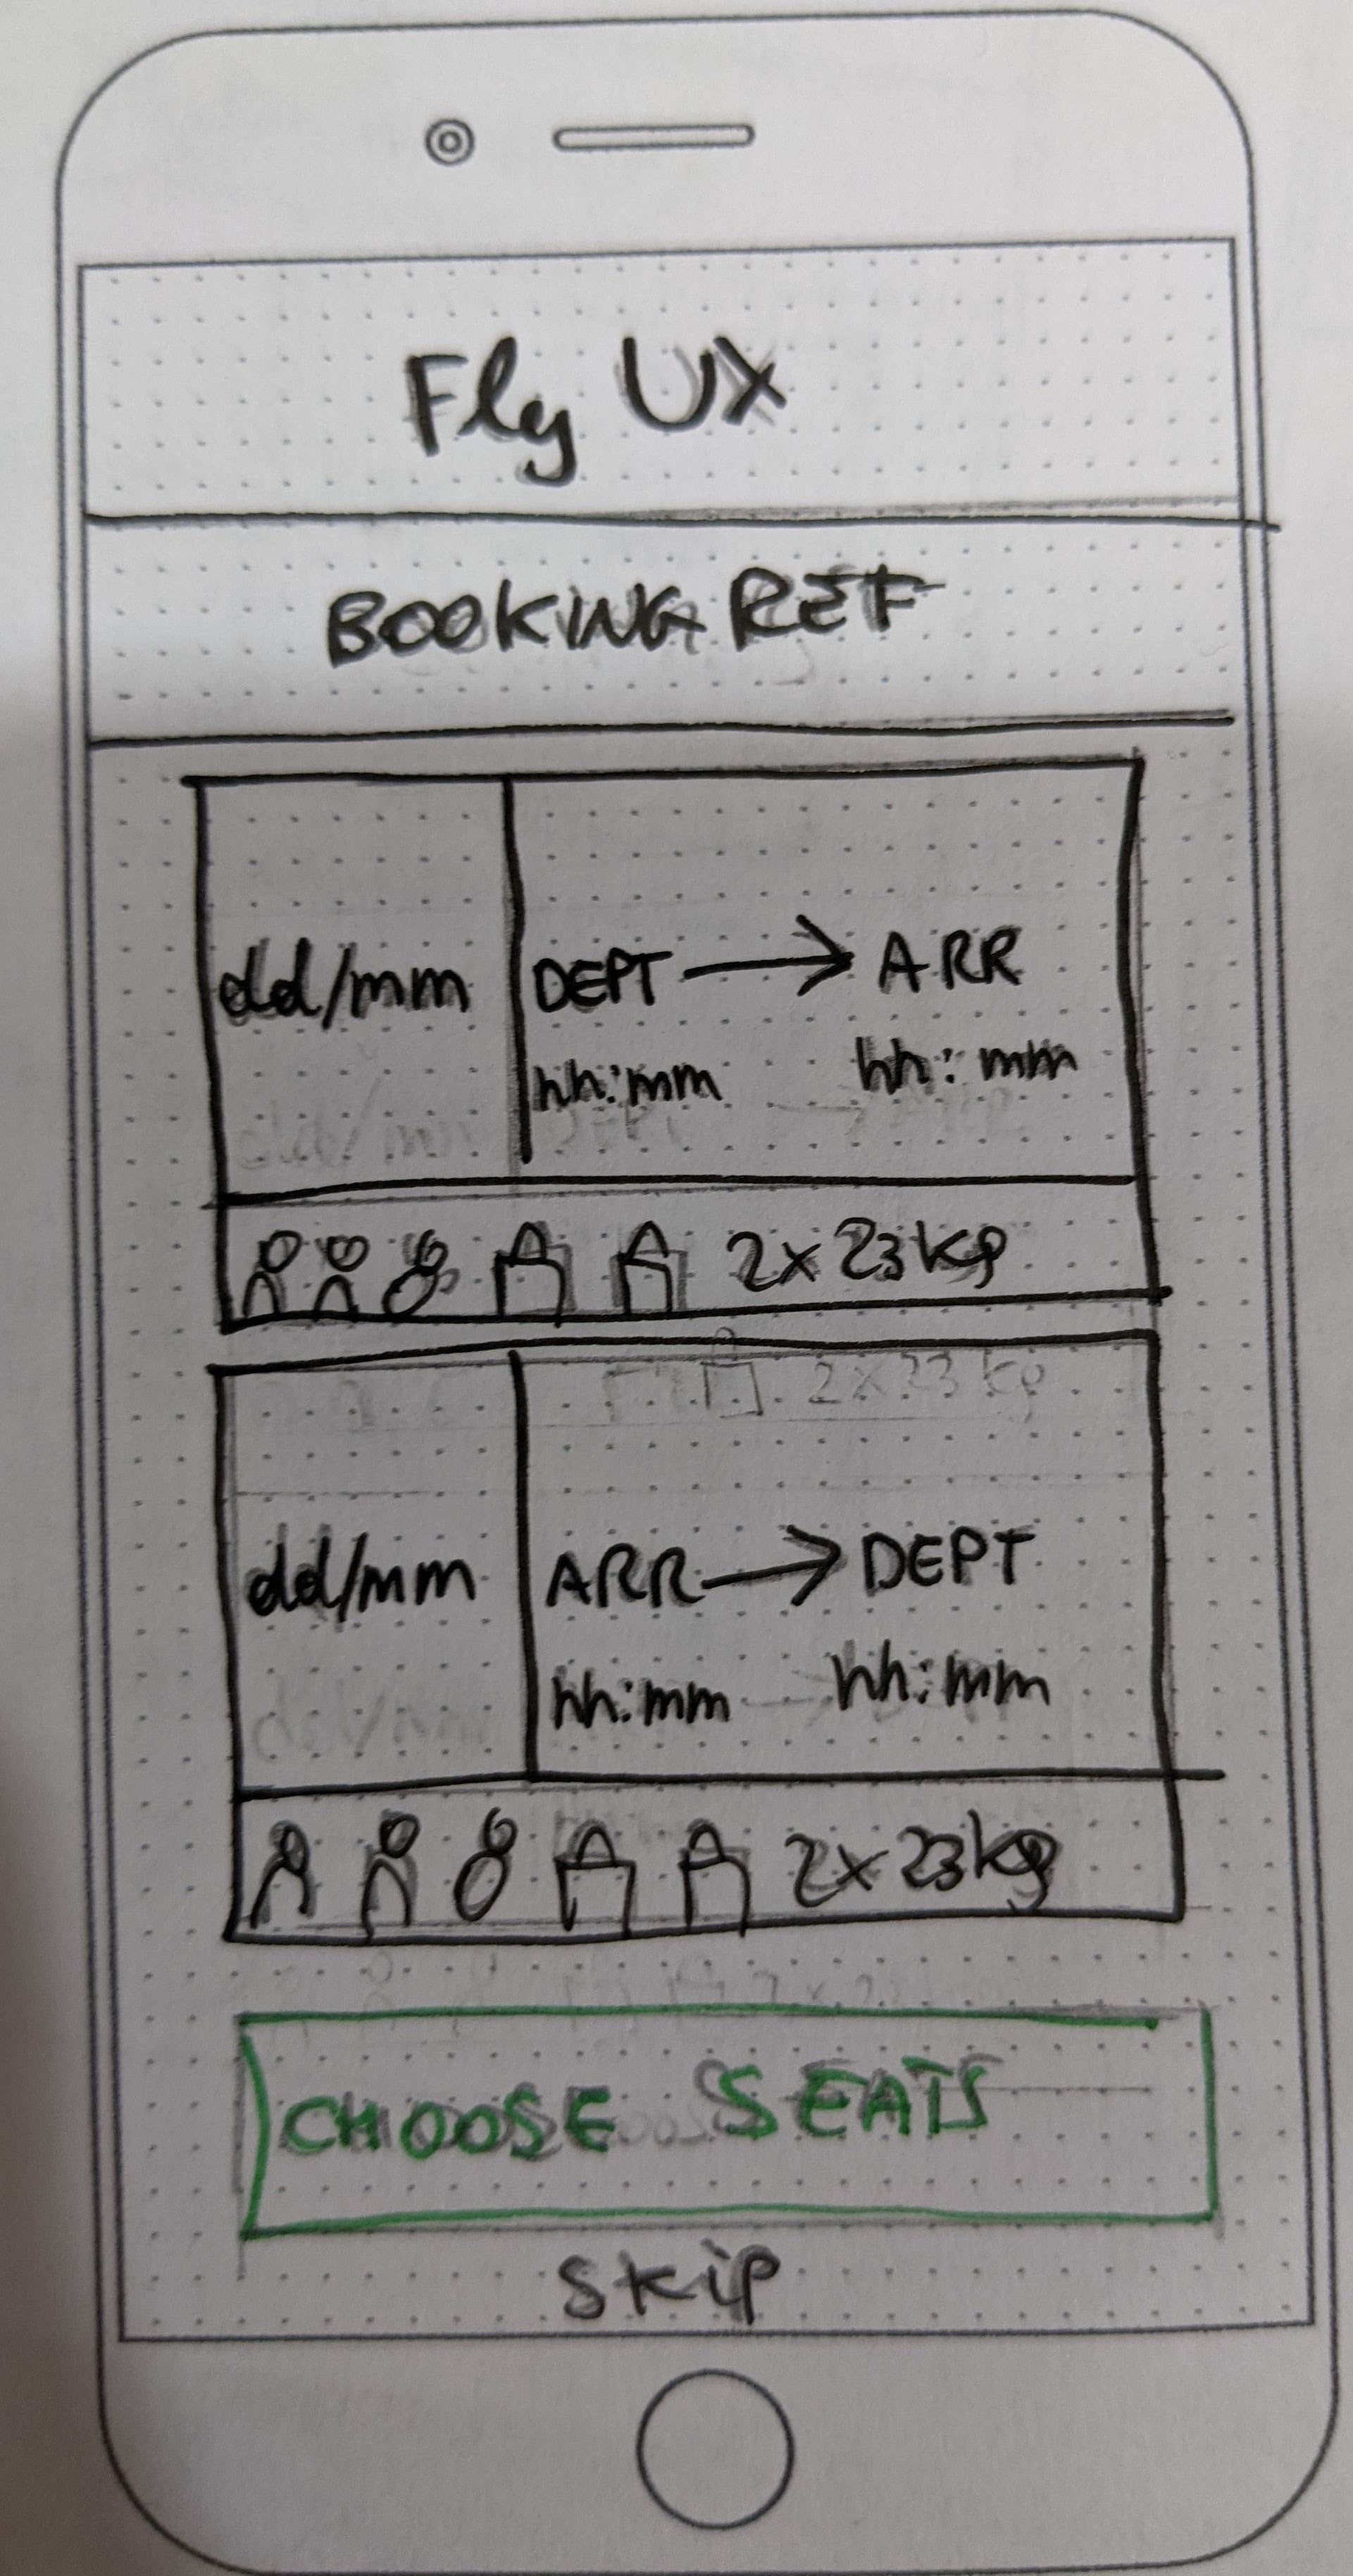 Fly UX
BOOKING REF
dd/mm
DEPT → ARR
hh:mm hh:mm
2x23kg
2x23kg
dd/mm
ARR → DEPT
hh:mm hh:mm
2x23kg
CHOOSE SEATS
SKIP